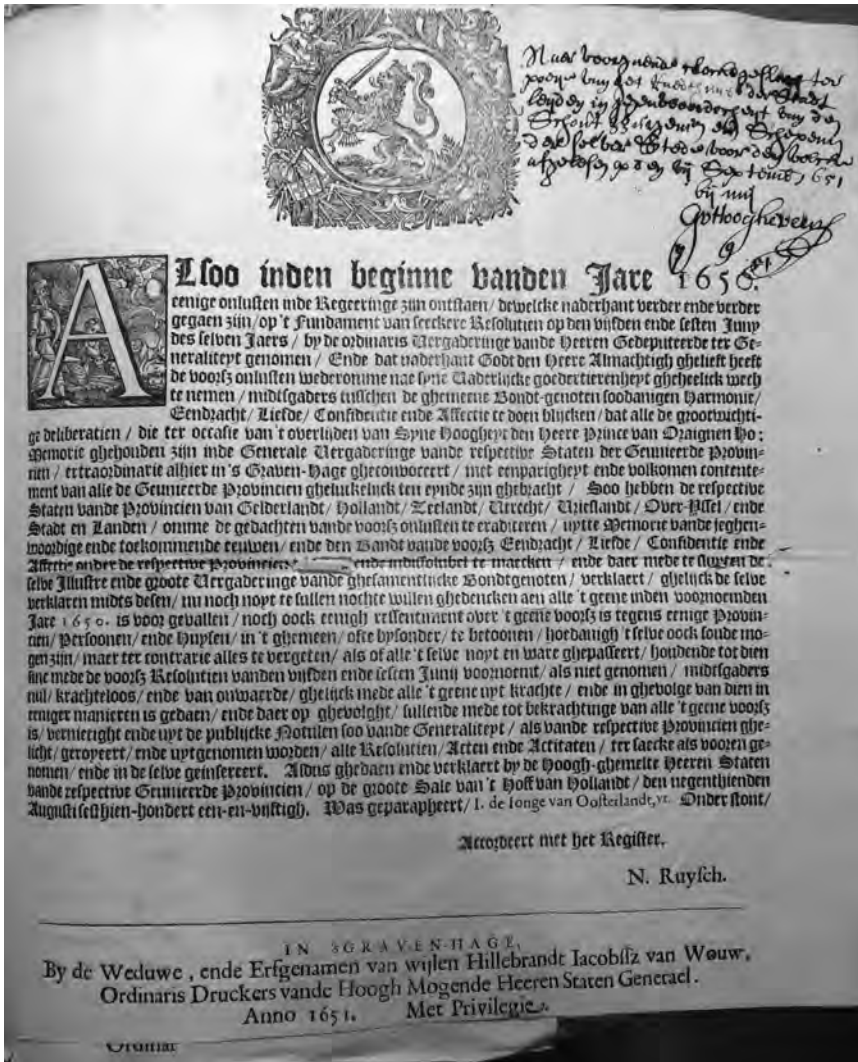 Naer voorgaende clockgeslach ter
poeye van het Raedthuis der Stadt
Leyden in jegenwoordicheyt van den
Schout en Schepenen
der selver Stede voor den volcke
afgelesen op den Septemb. 1651
bij mij
GvHoogheveen
1651
ALsoo inden beginne vanden Jare 1650.
eenige onlusten inde Regeeringe zijn ontstaen/ dewelcke naderhant verder ende verder
gegaen zijn/ op 't Fundament van seeckere Resolutien op den vijfden ende sesten Juny
des selven Jaers/ by de ordinaris Vergaderinge vande Heeren Gedeputeerde ter Ge-
neraliteyt genomen/ Ende dat naderhant Godt den Heere Almachtigh ghelieft heeft
de voorsz onlusten wederomme nae syne Vaderlijcke goedertierenheyt gheheelick wech
te nemen/ midtsgaders tusschen de ghemeene Bondt-genoten soodanigen Harmonie/
Eendracht/ Liefde/ Confidentie ende Affectie te doen blijcken/ dat alle de grootwichti-
ge deliberatien/ die ter occasie van 't overlijden van Syne Hoogheyt den Heere Prince van Oraignen Ho:
Memorie ghehouden zijn inde Generale Vergaderinge vande respective Staten der Geunieerde Provin-
tien/ extraordinarie alhier in 's Graven-Hage gheconvoceert/ met eenparigheyt ende volkomen contente-
ment van alle de Geunieerde Provincien gheluckelijck ten eynde zijn ghebracht/ Soo hebben de respective
Staten vande Provincien van Gelderlandt/ Hollandt/ Zeelandt/ Utrecht/ Vrieslandt/ Over-Yssel/ ende
Stadt en Landen/ omme de gedachten vande voorsz onlusten te eradiceren/ uytte Memorie vande jeghen-
woordige ende toekommende eeuwen/ ende den Bandt vande voorsz Eendracht/ Liefde/ Confidentie ende
Affectie onder de respective Provincien ende indissolubel te maecken/ ende daer mede te sluyten de
selve Illustre ende groote Vergaderinge vande ghesamentlijcke Bondtgenoten/ verklaert/ ghelijck de selve
verklaren midts desen/ nu noch noyt te sullen nochte willen ghedencken aen alle 't geene inden voornoemden
Jare 1650. is voor gevallen/ noch oock eenigh ressentiment over 't geene voorsz is tegens eenige Provin-
tien/ Persoonen/ ende Huysen/ in 't ghemeen/ ofte bysonder/ te betoonen/ hoedanigh 't selve oock soude mo-
gen zijn/ maer ter contrarie alles te vergeten/ als of alle 't selve noyt en ware ghepasseert/ houdende tot dien
fine mede de voorsz Resolutien vanden vijfden ende sesten Junij voornoemt/ als niet genomen/ midtsgaders
nul/ krachteloos/ ende van onwaerde/ ghelijck mede alle 't geene uyt krachte/ ende in ghevolge van dien in
eeniger manieren is gedaen/ ende daer op ghevolght/ sullende mede tot bekrachtinge van alle 't geene voorsz
is/ vernietight ende uyt de publijcke Notulen soo vande Generaliteyt/ als vande respective Provincien ghe-
licht/ geroyeert/ ende uytgenomen worden/ alle Resolutien/ Acten ende Actitaten/ ter saecke als vooren ge-
nomen/ ende in de selve geinsereert. Aldus ghedaen ende verklaert by de Hoogh-ghemelte Heeren Staten
vande respective Geunieerde Provincien/ op de groote Sale van 't Hoff van Hollandt/ den negenthienden
Augusti sesthien-hondert een-en-vijftigh. Was geparapheert/ I. de Ionge van Oosterlandt, vt. Onder stont/
Accordeert met het Register.
N. Ruysch.
IN 'sGRAVEN-HAGE,
By de Weduwe, ende Erfgenamen van wijlen Hillebrandt Iacobssz van Wouw,
Ordinaris Druckers vande Hoogh Mogende Heeren Staten Generael.
Anno 1651. Met Privilegie.
Ordinar